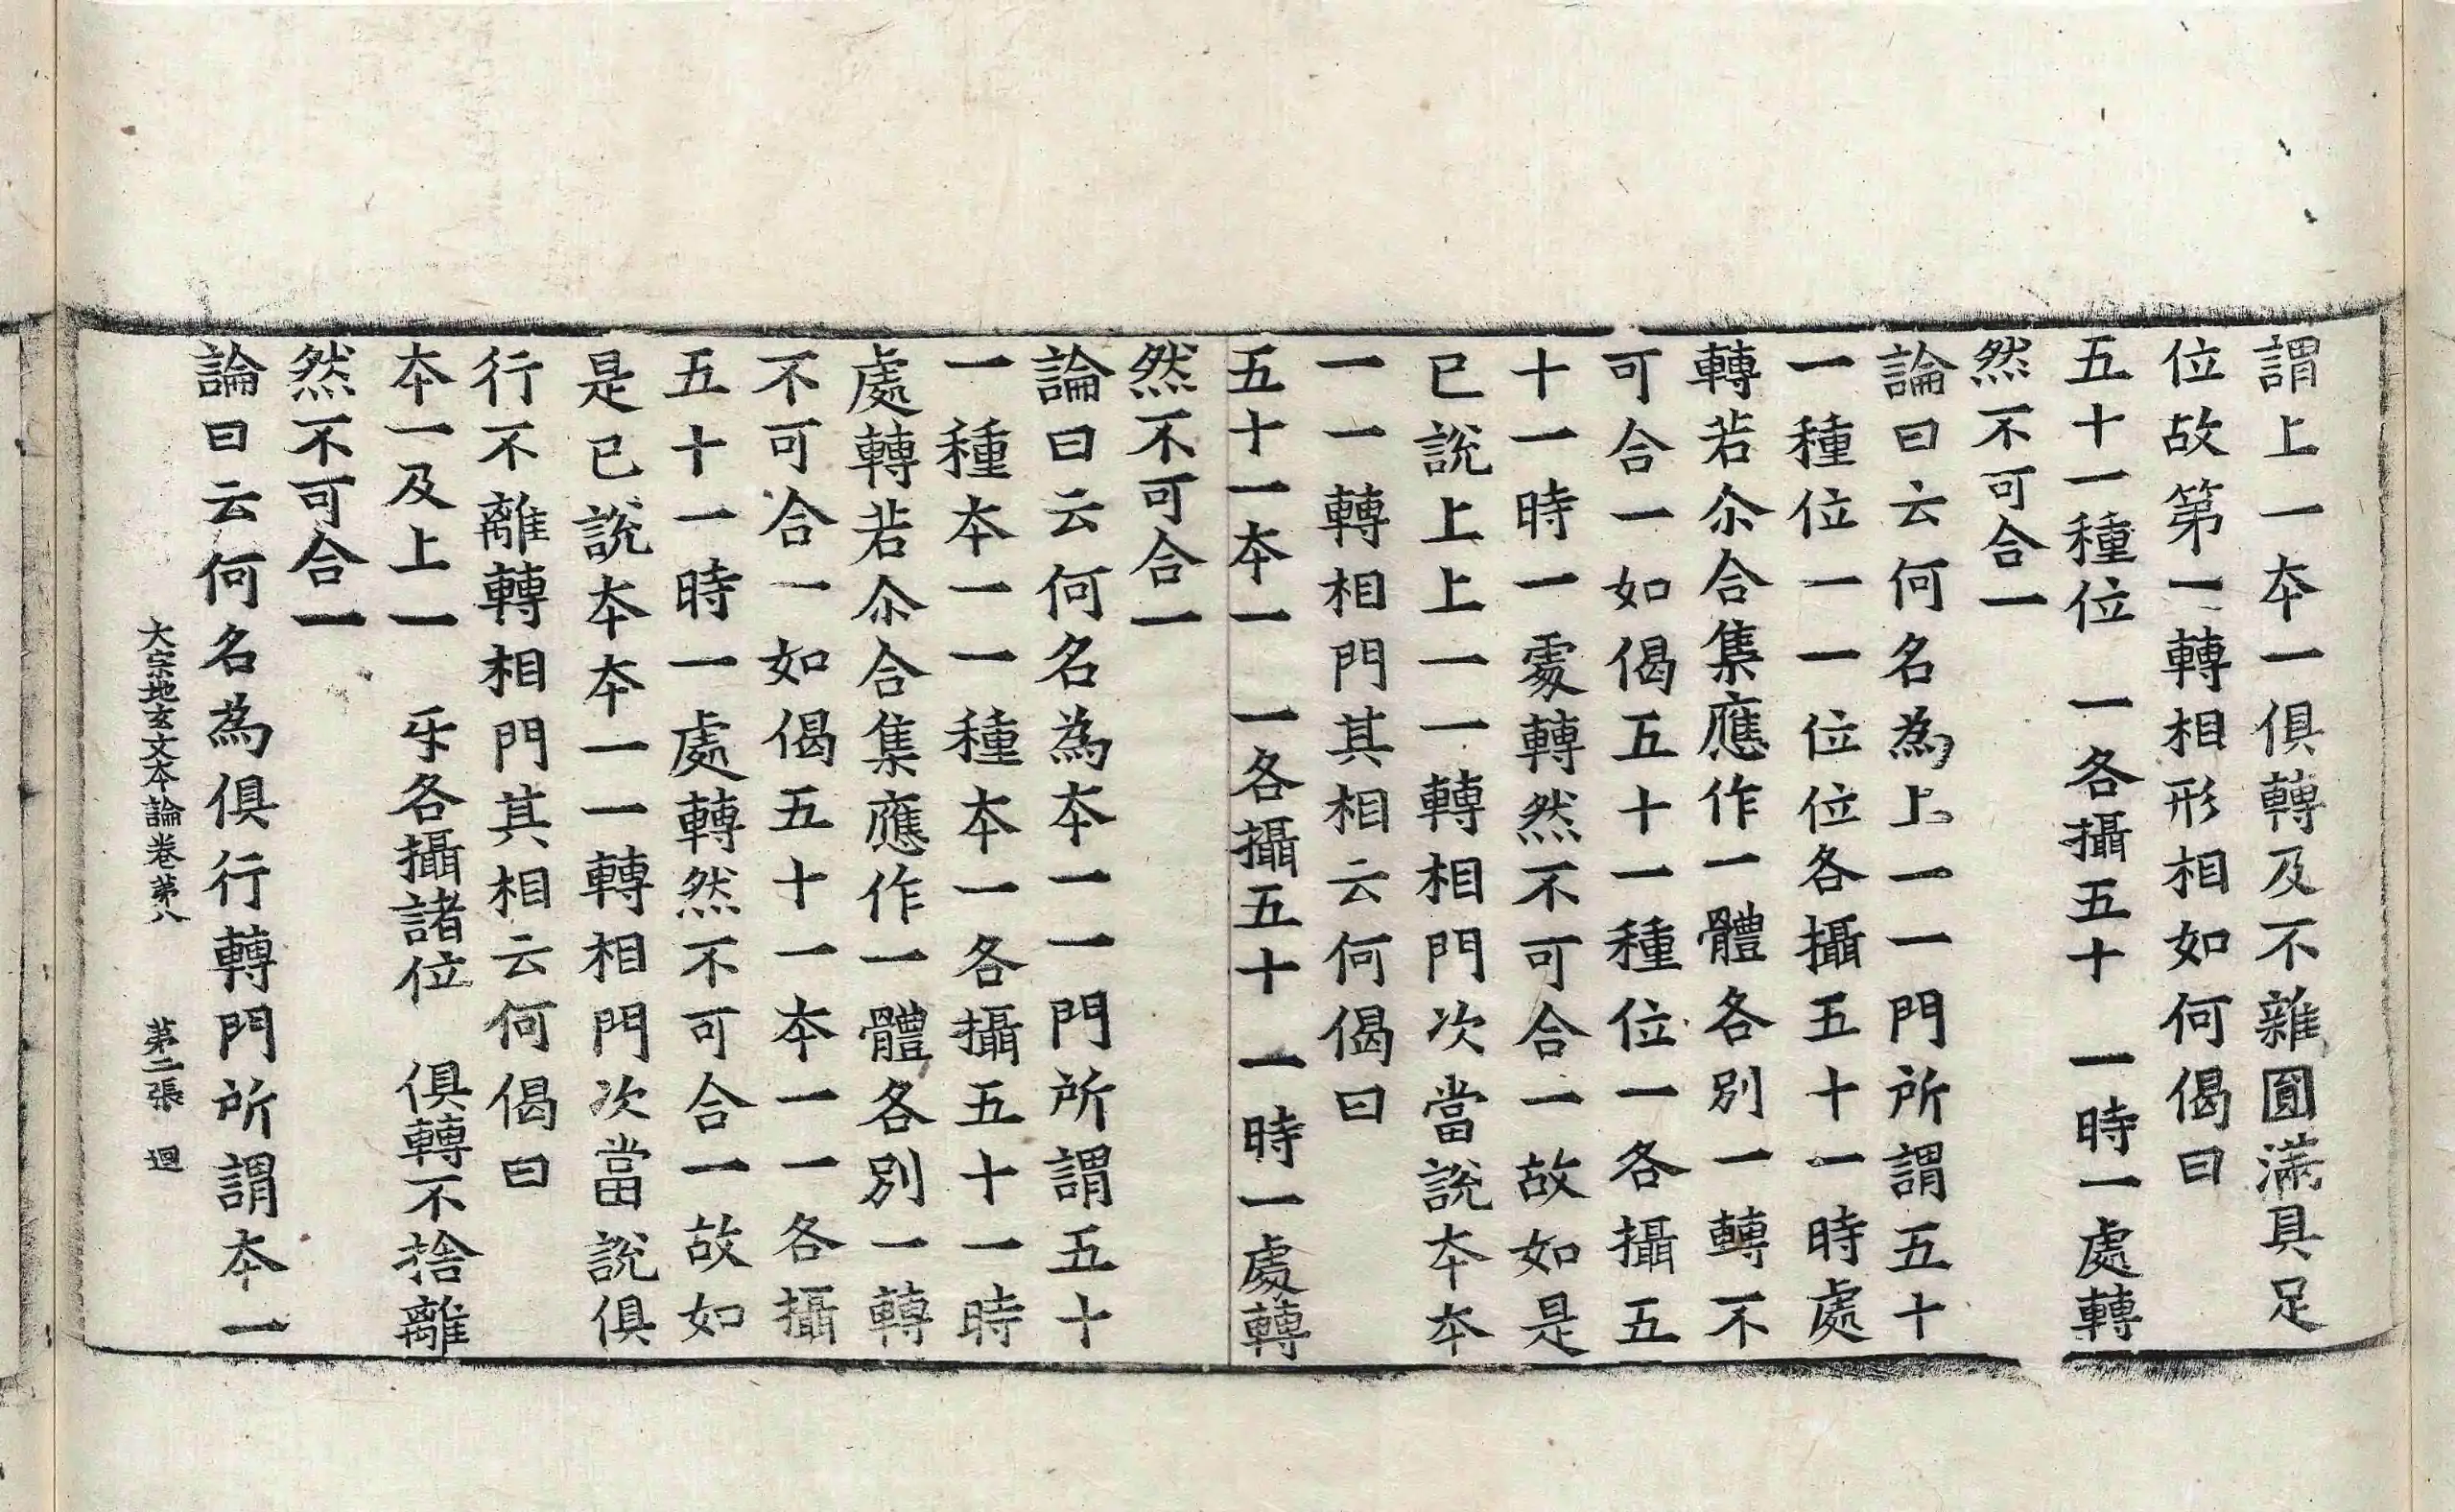 謂上一夲一俱轉及不雜圓滿具足
位故第一轉相形相如何偈曰
五十一種位　一各攝五十　一時一處轉
然不可合一
論曰云何名為上一一門所謂五十
一種位一一位位各攝五十一時處
轉若尒合集應作一體各別一轉不
可合一如偈五十一種位一各攝五
十一時一處轉然不可合一故如是
已說上上一一轉相門次當說夲夲
一一轉相門其相云何偈曰
五十一夲一　一各攝五十　一時一處轉
然不可合一
論曰云何名為夲一一門所謂五十
一種夲一一種夲一各攝五十一時
處轉若尒合集應作一體各別一轉
不可合一如偈五十一夲一一各攝
五十一時一處轉然不可合一故如
是已說夲夲一一轉相門次當說俱
行不離轉相門其相云何偈曰
夲一及上一　㸦各攝諸位　俱轉不捨離
然不可合一
論曰云何名為俱行轉門所謂夲一
大宗地玄文夲論卷苐八　苐二張　迴